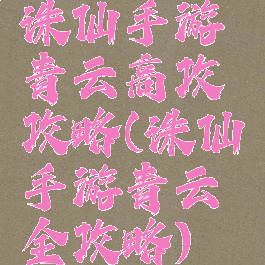 诛仙手游
青云高攻
攻略(诛仙
手游青云
全攻略)